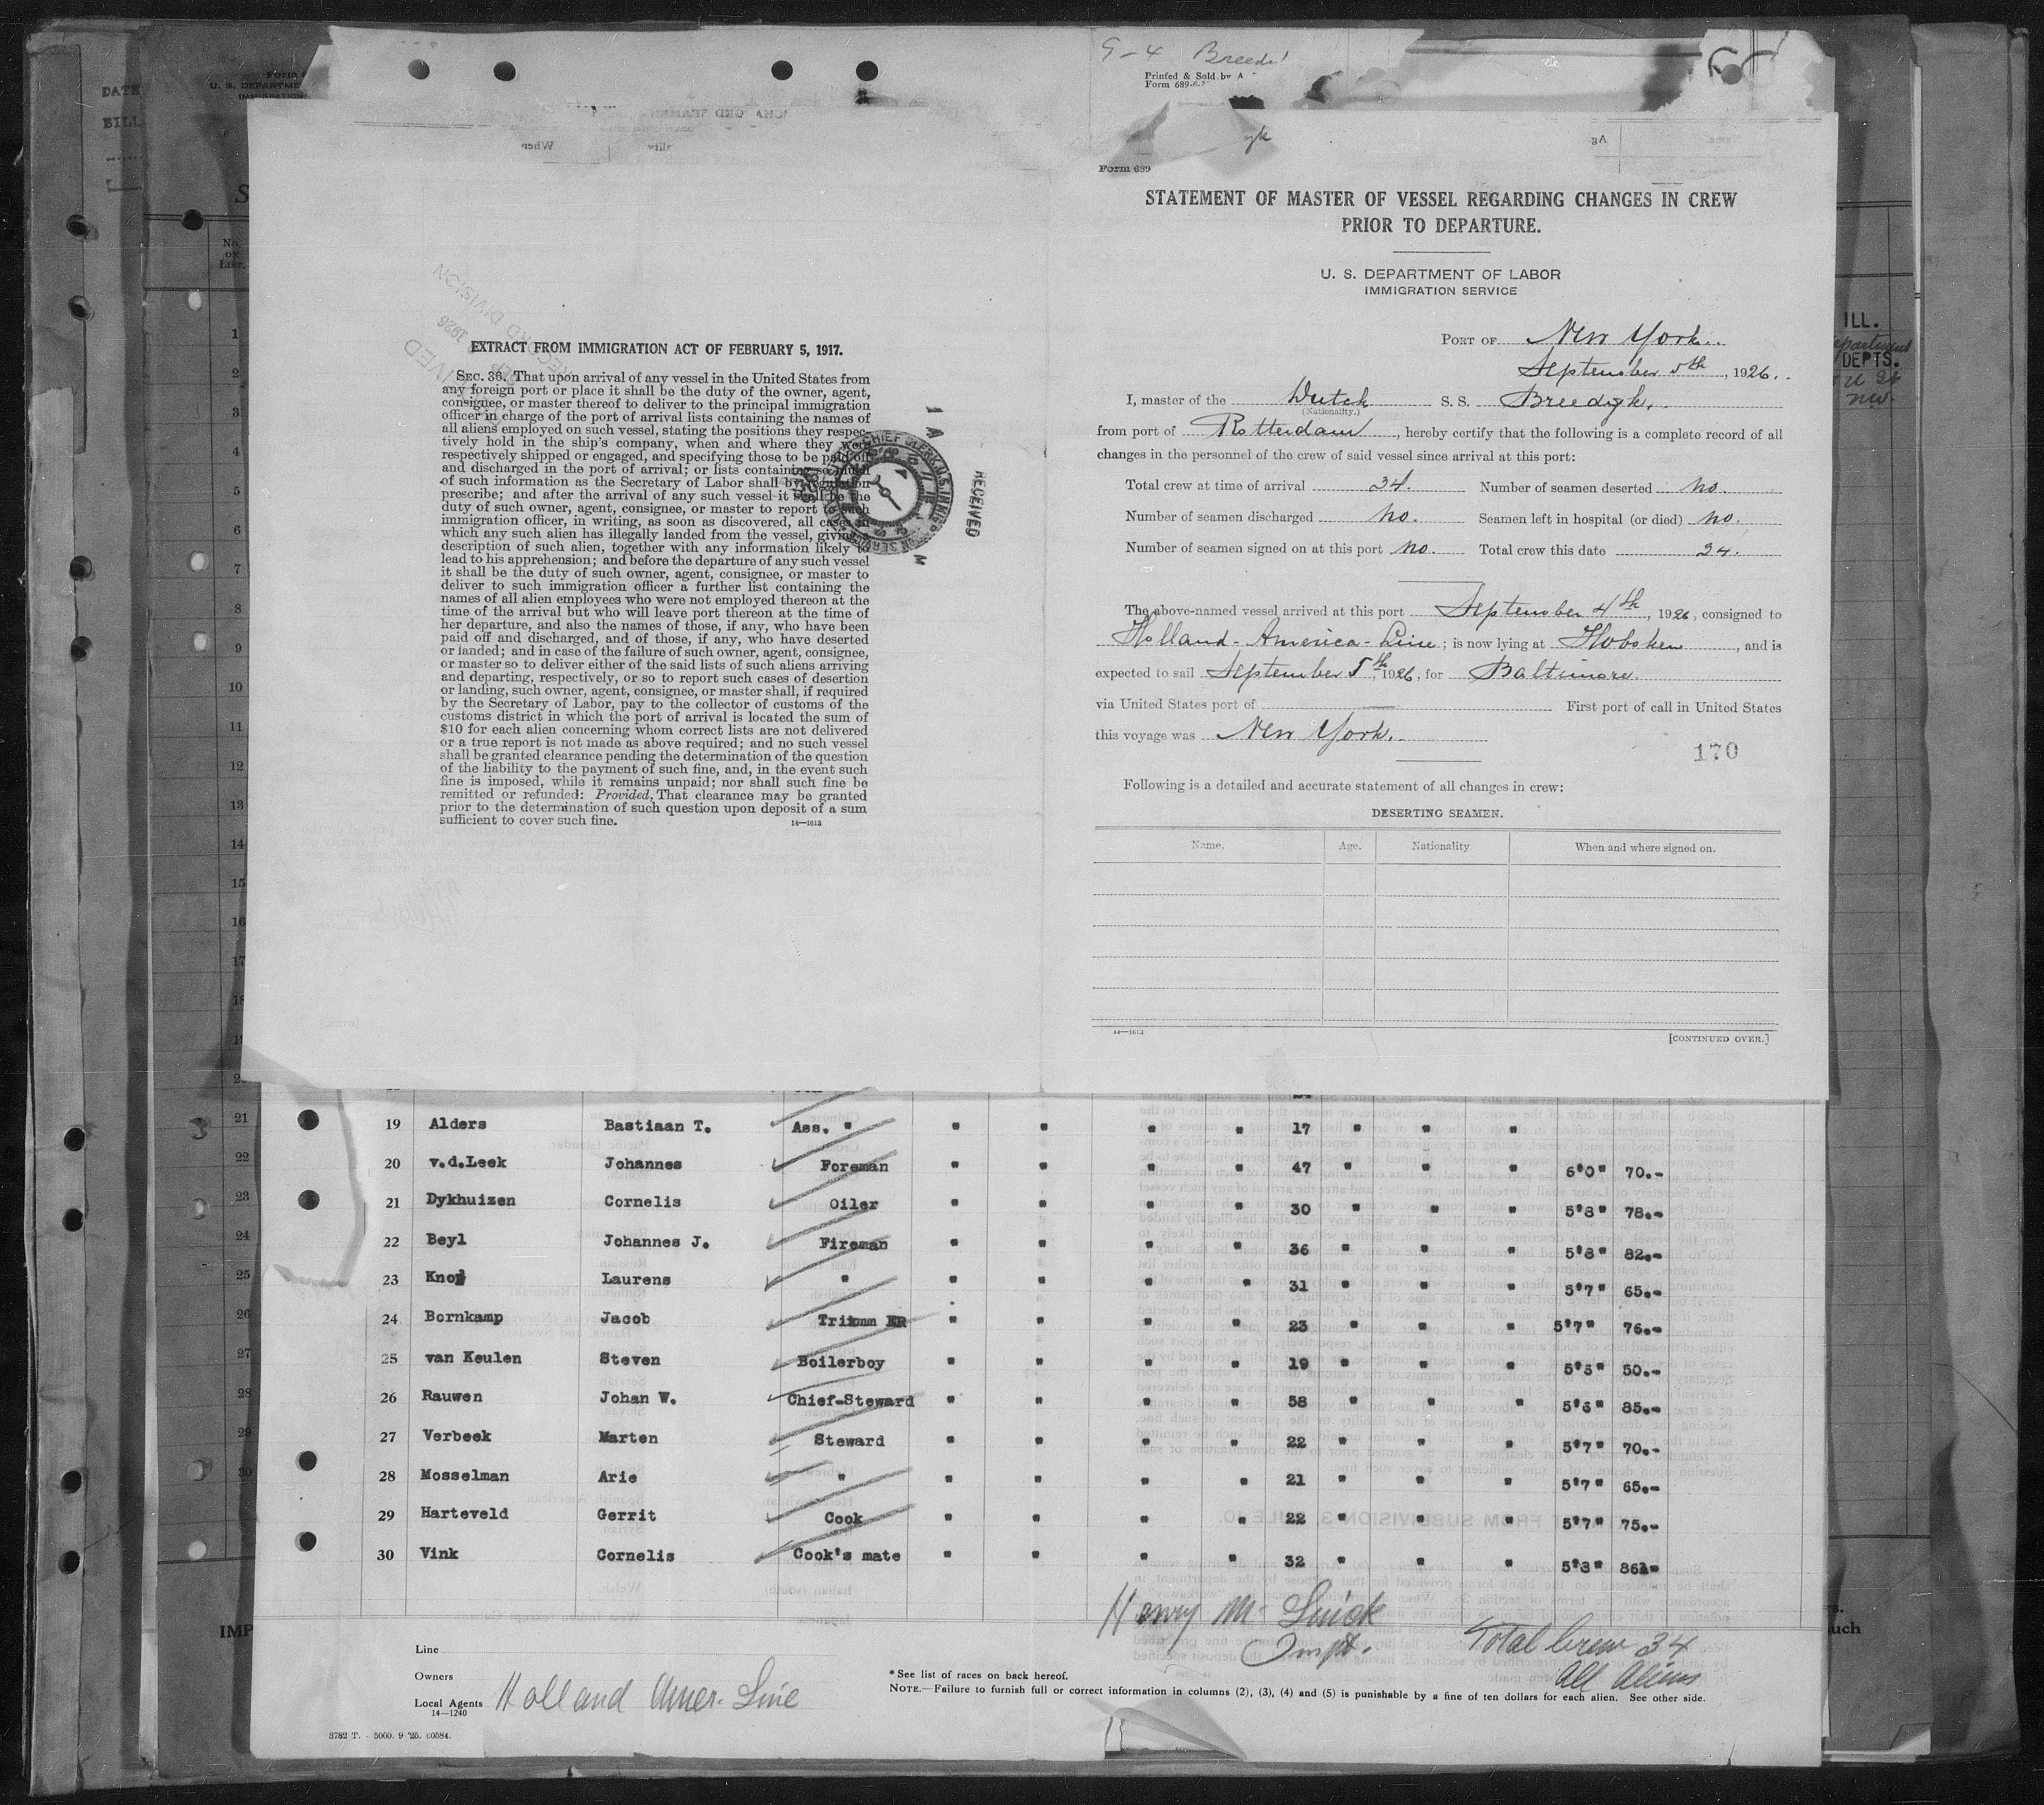 G-4 Breed
Printed & Sold by A
Form 689
DATE
BILL
Form
U. S. DEPARTME
IMMIGRATION
Form 689
STATEMENT OF MASTER OF VESSEL REGARDING CHANGES IN CREW
PRIOR TO DEPARTURE.
U. S. DEPARTMENT OF LABOR
IMMIGRATION SERVICE
PORT OF New York.
September 5th, 1926.
I, master of the Dutch S. S. Breedyk,
(Nationality.)
from port of Rotterdam, hereby certify that the following is a complete record of all
changes in the personnel of the crew of said vessel since arrival at this port:
Total crew at time of arrival 34. Number of seamen deserted no.
Number of seamen discharged no. Seamen left in hospital (or died) no.
Number of seamen signed on at this port no. Total crew this date 34.
The above-named vessel arrived at this port September 4th, 1926, consigned to
Holland-America-Line; is now lying at Hoboken, and is
expected to sail September 5th, 1926, for Baltimore.
via United States port of — First port of call in United States
this voyage was New York.
170
Following is a detailed and accurate statement of all changes in crew:
DESERTING SEAMEN.
Name. Age. Nationality When and where signed on.
14—1613
[CONTINUED OVER.]
EXTRACT FROM IMMIGRATION ACT OF FEBRUARY 5, 1917.
SEC. 36. That upon arrival of any vessel in the United States from
any foreign port or place it shall be the duty of the owner, agent,
consignee, or master thereof to deliver to the principal immigration
officer in charge of the port of arrival lists containing the names of
all aliens employed on such vessel, stating the positions they respec-
tively hold in the ship's company, when and where they were
respectively shipped or engaged, and specifying those to be paid off
and discharged in the port of arrival; or lists containing so much
of such information as the Secretary of Labor shall by regulation
prescribe; and after the arrival of any such vessel it shall be the
duty of such owner, agent, consignee, or master to report to such
immigration officer, in writing, as soon as discovered, all cases in
which any such alien has illegally landed from the vessel, giving a
description of such alien, together with any information likely to
lead to his apprehension; and before the departure of any such vessel
it shall be the duty of such owner, agent, consignee, or master to
deliver to such immigration officer a further list containing the
names of all alien employees who were not employed thereon at the
time of the arrival but who will leave port thereon at the time of
her departure, and also the names of those, if any, who have been
paid off and discharged, and of those, if any, who have deserted
or landed; and in case of the failure of such owner, agent, consignee,
or master so to deliver either of the said lists of such aliens arriving
and departing, respectively, or so to report such cases of desertion
or landing, such owner, agent, consignee, or master shall, if required
by the Secretary of Labor, pay to the collector of customs of the
customs district in which the port of arrival is located the sum of
$10 for each alien concerning whom correct lists are not delivered
or a true report is not made as above required; and no such vessel
shall be granted clearance pending the determination of the question
of the liability to the payment of such fine, and, in the event such
fine is imposed, while it remains unpaid; nor shall such fine be
remitted or refunded: Provided, That clearance may be granted
prior to the determination of such question upon deposit of a sum
sufficient to cover such fine.
14—1613
RECEIVED
ILL.
DEPTS.
19 Alders Bastiaan T. Ass. " " " " " 17 " " "
20 v.d.Leek Johannes Foreman " " " " 47 " " " 6'0" 70.-
21 Dykhuizen Cornelis Oiler " " " " 30 " " " 5'8" 78.-
22 Beyl Johannes J. Fireman " " " " 36 " " " 5'8" 82.-
23 Laurens " " " " " 31 " " " 5'7" 65.-
24 Bornkamp Jacob Trimm ER " " " " 23 " " " 5'7" 76.-
25 van Keulen Steven Boilerboy " " " " 19 " " " 50.-
26 Rauwen Johan W. Chief-Steward " " " " 58 " " " 5'6" 85.-
27 Verbeek Marten Steward " " " " 22 " " " 5'7" 70.-
28 Mosselman Arie " " " " " 21 " " " 5'7" 65.-
29 Harteveld Gerrit Cook " " " " 22 " " " 5'7" 75.-
30 Vink Cornelis Cook's mate " " " " 32 " " " 5'8"
Line
Owners
Local Agents Holland Amer. Line
14—1240
Inspt.
Total Crew 34
All Aliens
* See list of races on back hereof.
NOTE.—Failure to furnish full or correct information in columns (2), (3), (4) and (5) is punishable by a fine of ten dollars for each alien. See other side.
3782 T. - 5000. 9 '25.